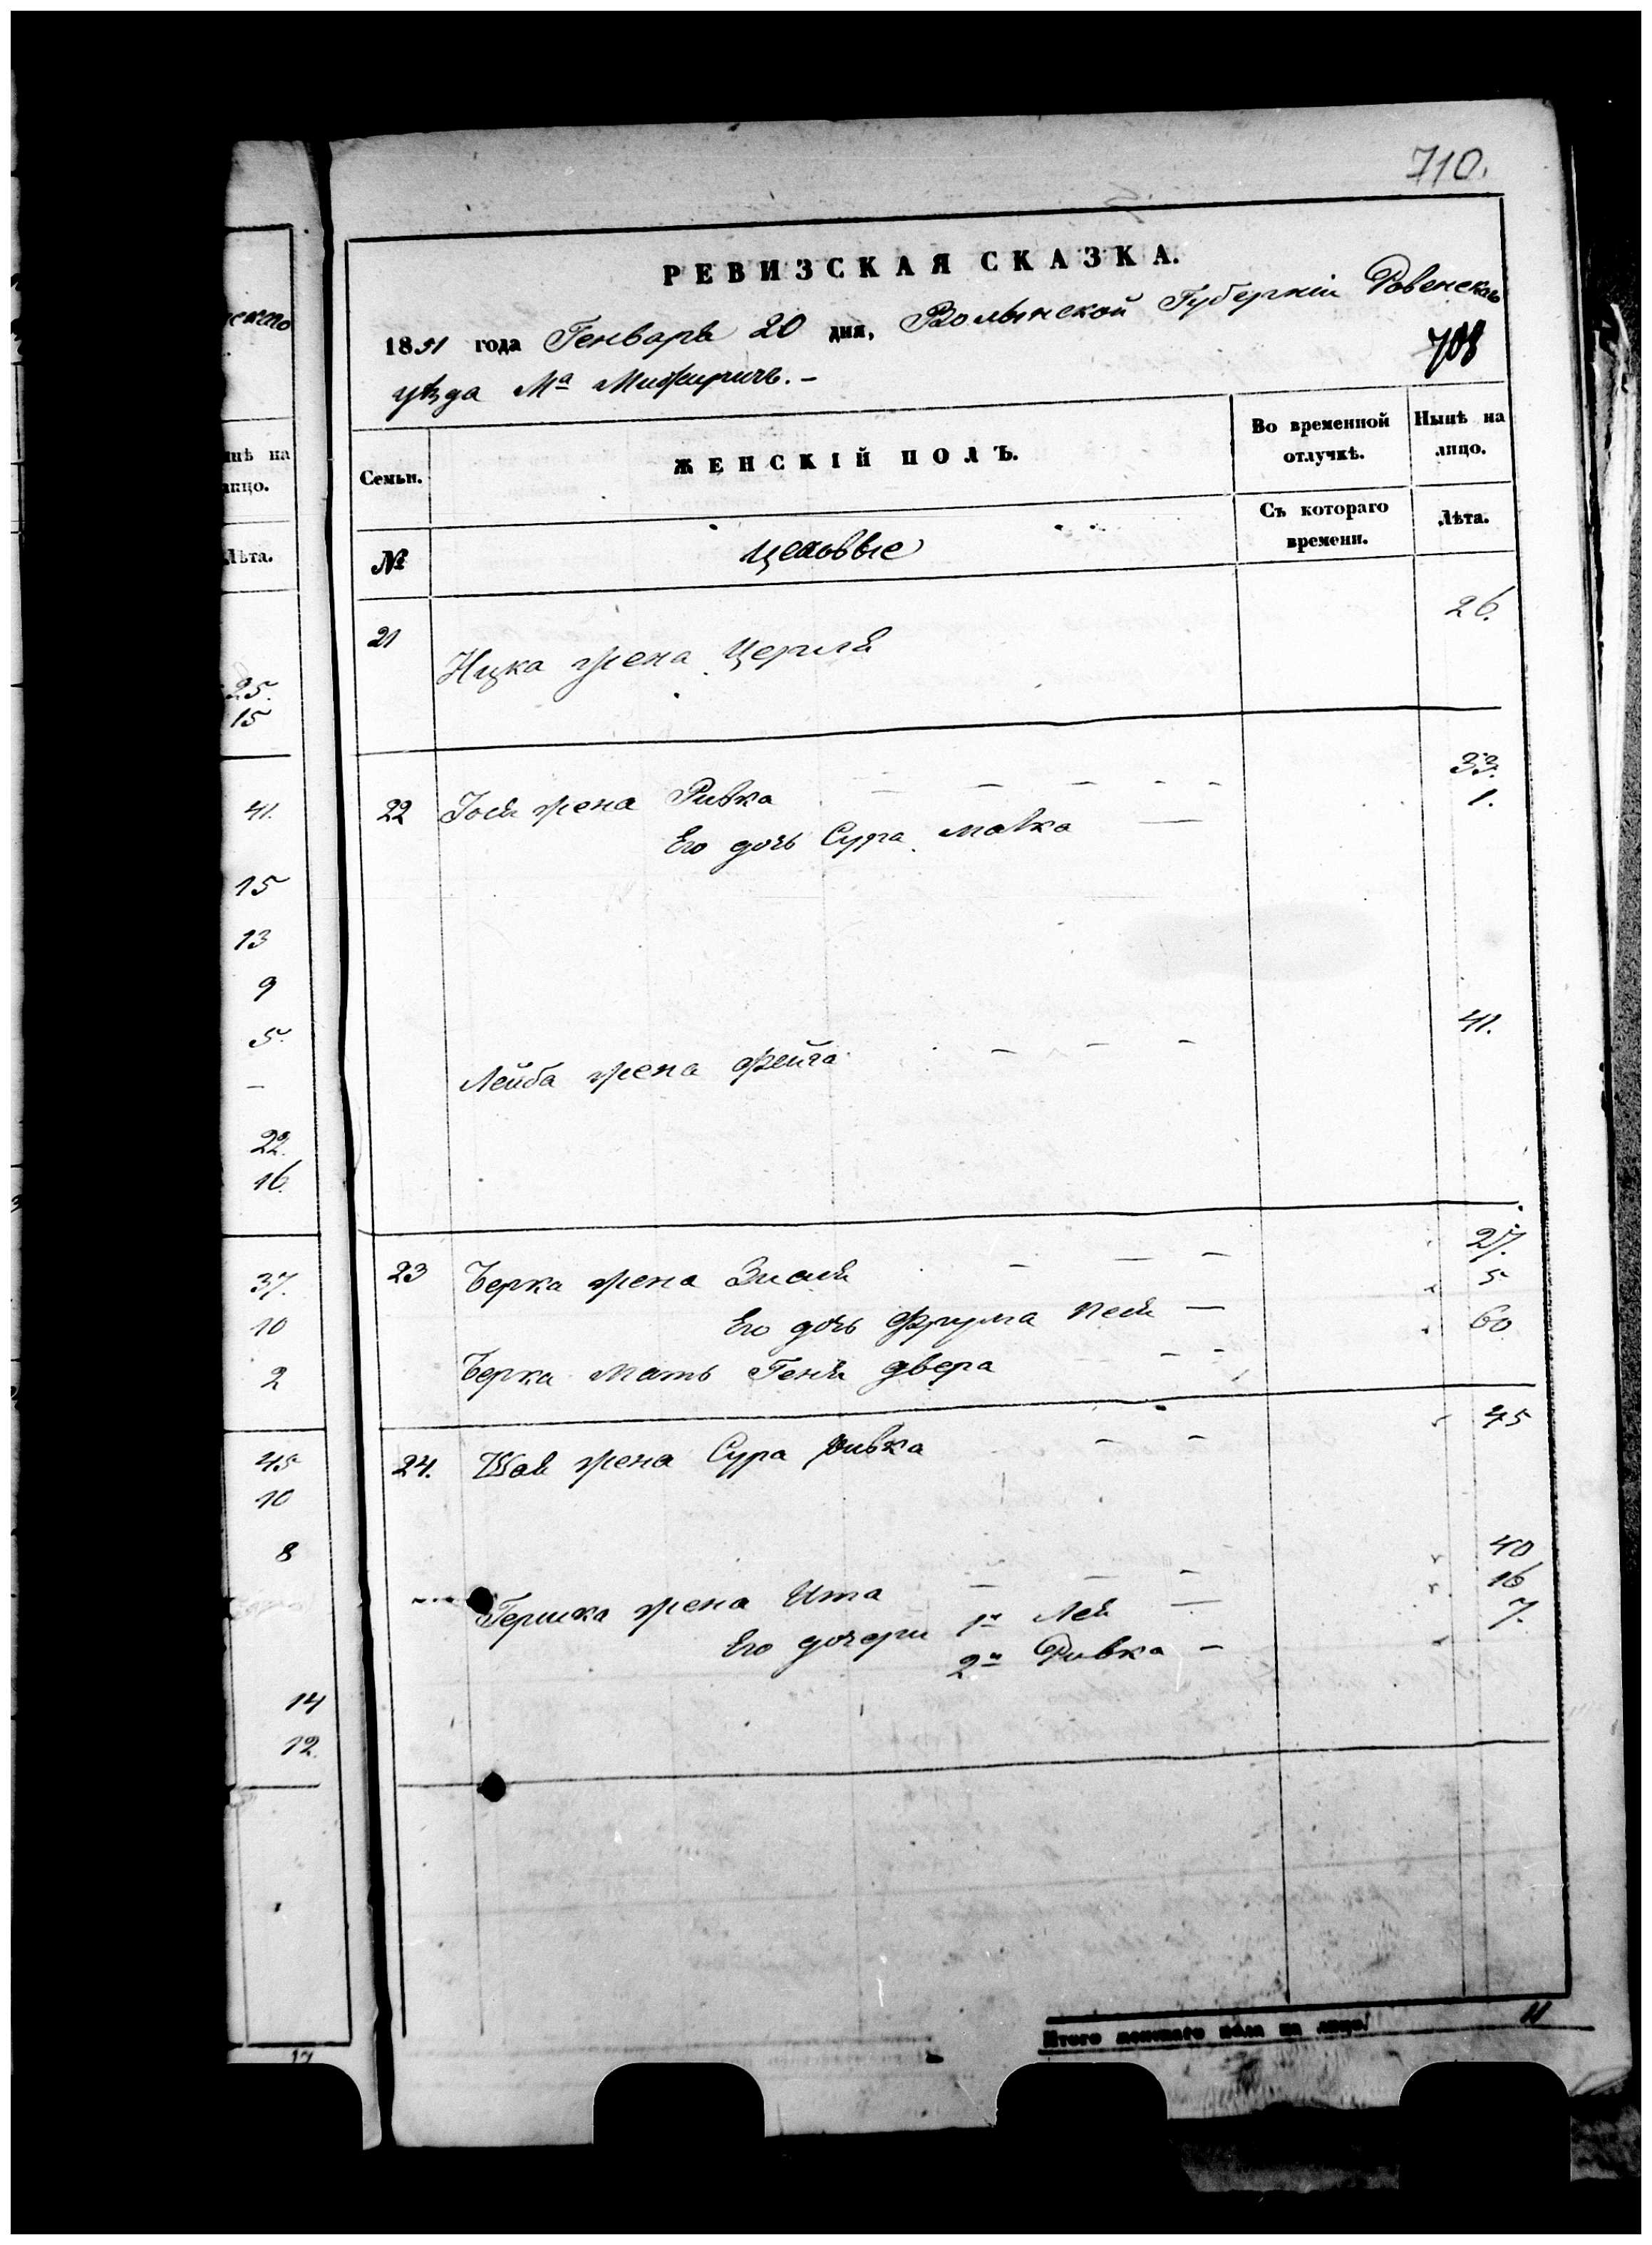 710.
РЕВИЗСКАЯ СКАЗКА.
1851 года Генваря 20 дня, Волынской Губернiи Ровенскаго
уѣзда Мᵃ Межиричъ. –
708
Семьи.
ЖЕНСКIЙ ПОЛЪ.
Во временной отлучкѣ.
Нынѣ на лицо.
№
Цеховые
Съ котораго времени.
Лѣта.
21 Ицка жена Церля 26.
22 Iося жена Ривка – – – – – 33.
Его дочь Сура Малка — 1.
Лейба жена Фейга – – – 41.
23 Берка жена Зисля – — – 27.
Его дочь Фрума Песя — 5
Берка мать Геня двера – – 60
24. Шая жена Сура Ривка – – 45
Гершка жена Ита – – – 40
Его дочери 1я Лея — 16
2я Ривка – 7.
Итого женскаго пола на лицо 11
скаго
нѣ на
лицо.
Лѣта.
25.
15
41.
15
13
9
5.
–
22.
16.
37.
10
2
45
10
8
14
12.
17